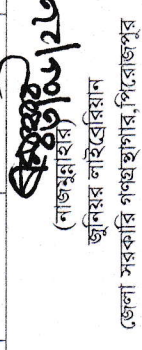 (নাজমুন্নাহার)
জুনিয়র লাইব্রেরিয়ান
জেলা সরকারি গণগ্রন্থাগার, পিরোজপুর